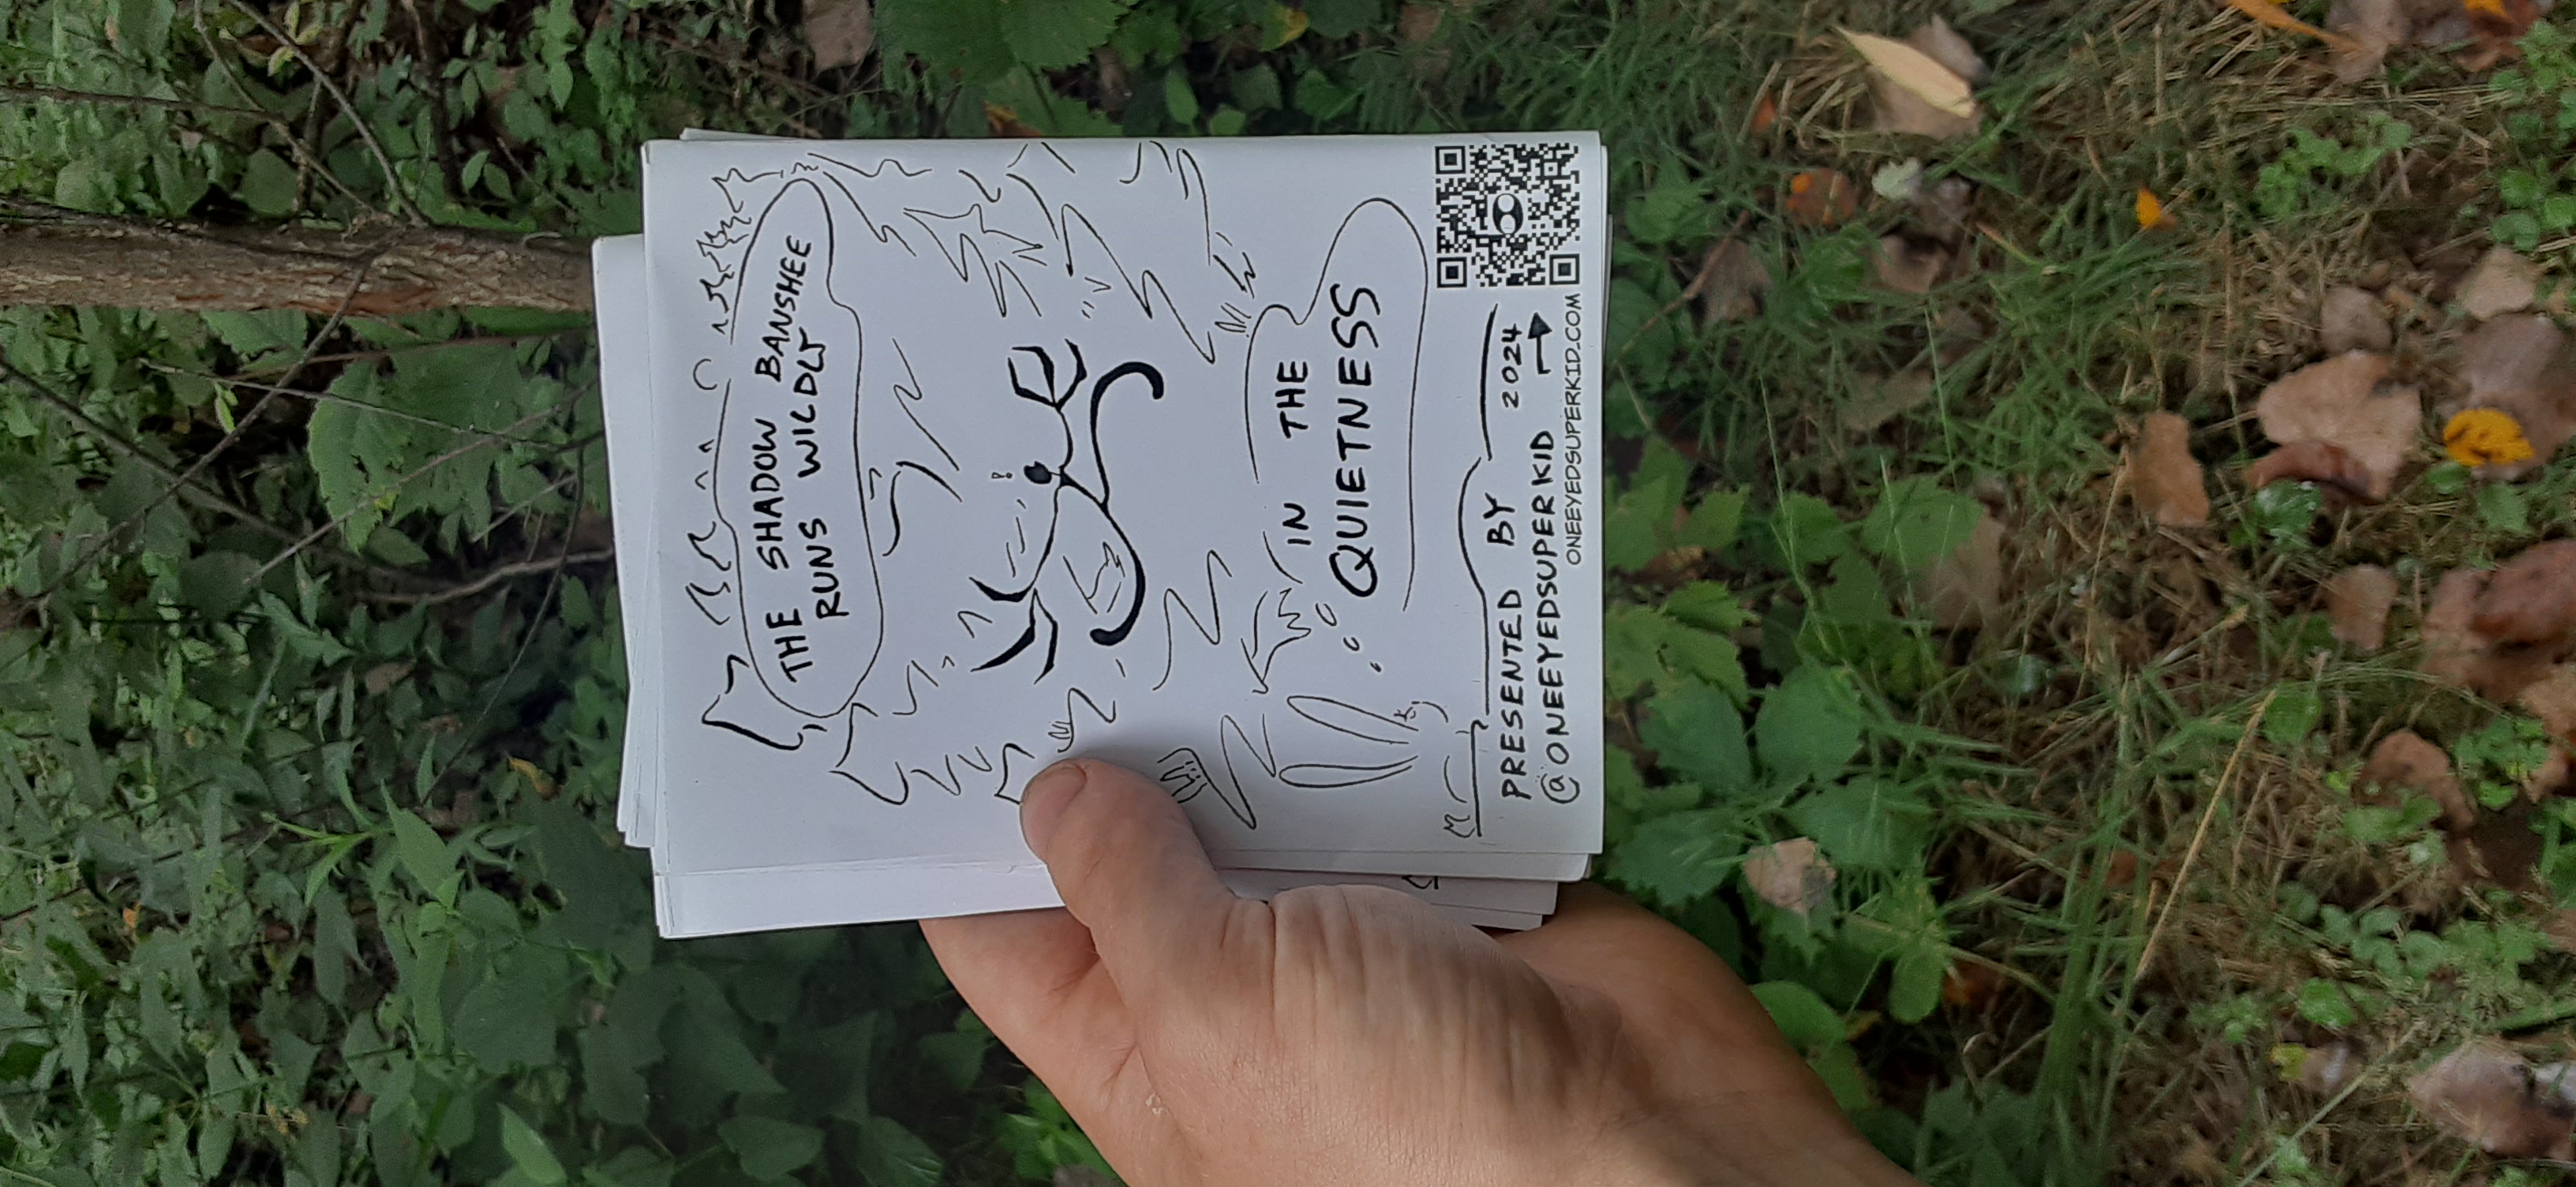 THE SHADOW BANSHEE
RUNS WILDLY
!
IN THE
QUIETNESS
PRESENTED BY 2024
@ONEEYEDSUPERKID
ONEEYEDSUPERKID.COM